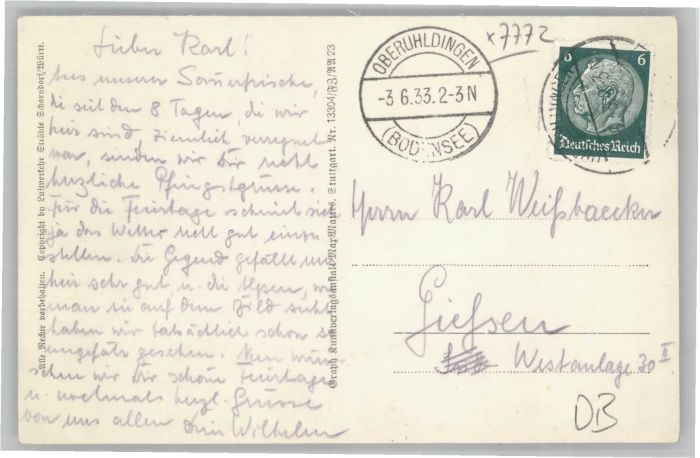 Lieber Karl!
Aus unserer Somerfrische,
die seit den 8 Tagen, die wir
hier sind, ziemlich verregnet
war, senden wir Dir recht
herzliche Pfingstgrüsse.
Für die Feiertage scheint sich
ja das Wetter recht gut einzu
stellen. Die Gegend gefällt uns
hier sehr gut u. die Alpen, wie
man sie auf dem Bild sieht
haben wir tatsächlich schon so
ungefähr gesehen. Nun wün-
schen wir Dir schöne Feiertage
u. nochmals herzl. Grüsse
von uns allen Dein Wilhelm
Alle Rechte vorbehalten. Copyright by Luftverkehr Strähle Schorndorf/Württ.
Graph. Kunstverlagsanstalt Max Mattes, Stuttgart. Nr. 13304/FB/AA 23
OBERUHLDINGEN
-3.6.33.2-3N
(BODENSEE)
x7772
6 6
Deutsches Reich
Herrn Karl Weißbaecker
Giessen
Westanlage 30 II
DB